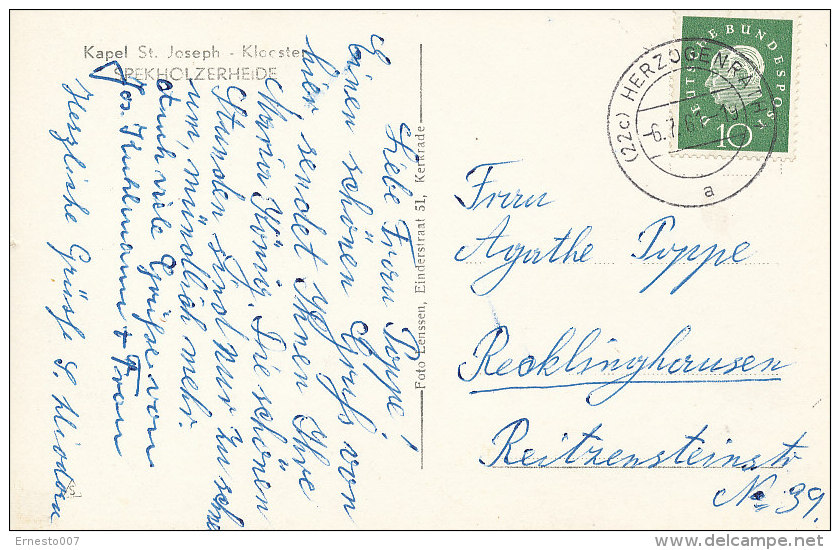 Kapel St. Joseph - Klooster
SPEKHOLZERHEIDE
Liebe Frau Poppe!
Einen schönen Gruß von
hier, sendet Ihnen Ihre
Maria König. Die schönen
Stunden sind nur zu schnell
um, mündlich mehr.
Auch viele Grüße von
Jos. Kuhlmann + Frau
Herzliche Grüße S.
Foto Lenssen, Einderstraat 51, Kerkrade
DEUTSCHE BUNDESPOST
10
(22c) HERZOGENRATH
6.7.
a
Frau
Agathe Poppe
Recklinghausen
Reitzensteinstr
No 39.
Ernesto007